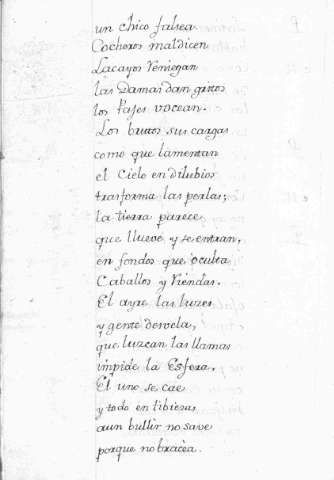 un chico falsea
Cocheros maldicen
Lacayos reniegan
las Damas dan gritos
los Pajes vocean.
Los brutos sus cargas
como que lamentan
el Cielo en dilubios
trasforma las perlas;
la tierra parece
que llueve y se entran,
en fondos que oculta
Caballos y Riendas.
El ayre las luzes
y gente desvela,
que luzcan las llamas
impide la Esfera,
El uno se cae
y todo en tibiezas
aun bullir no save
porque no bracèa.